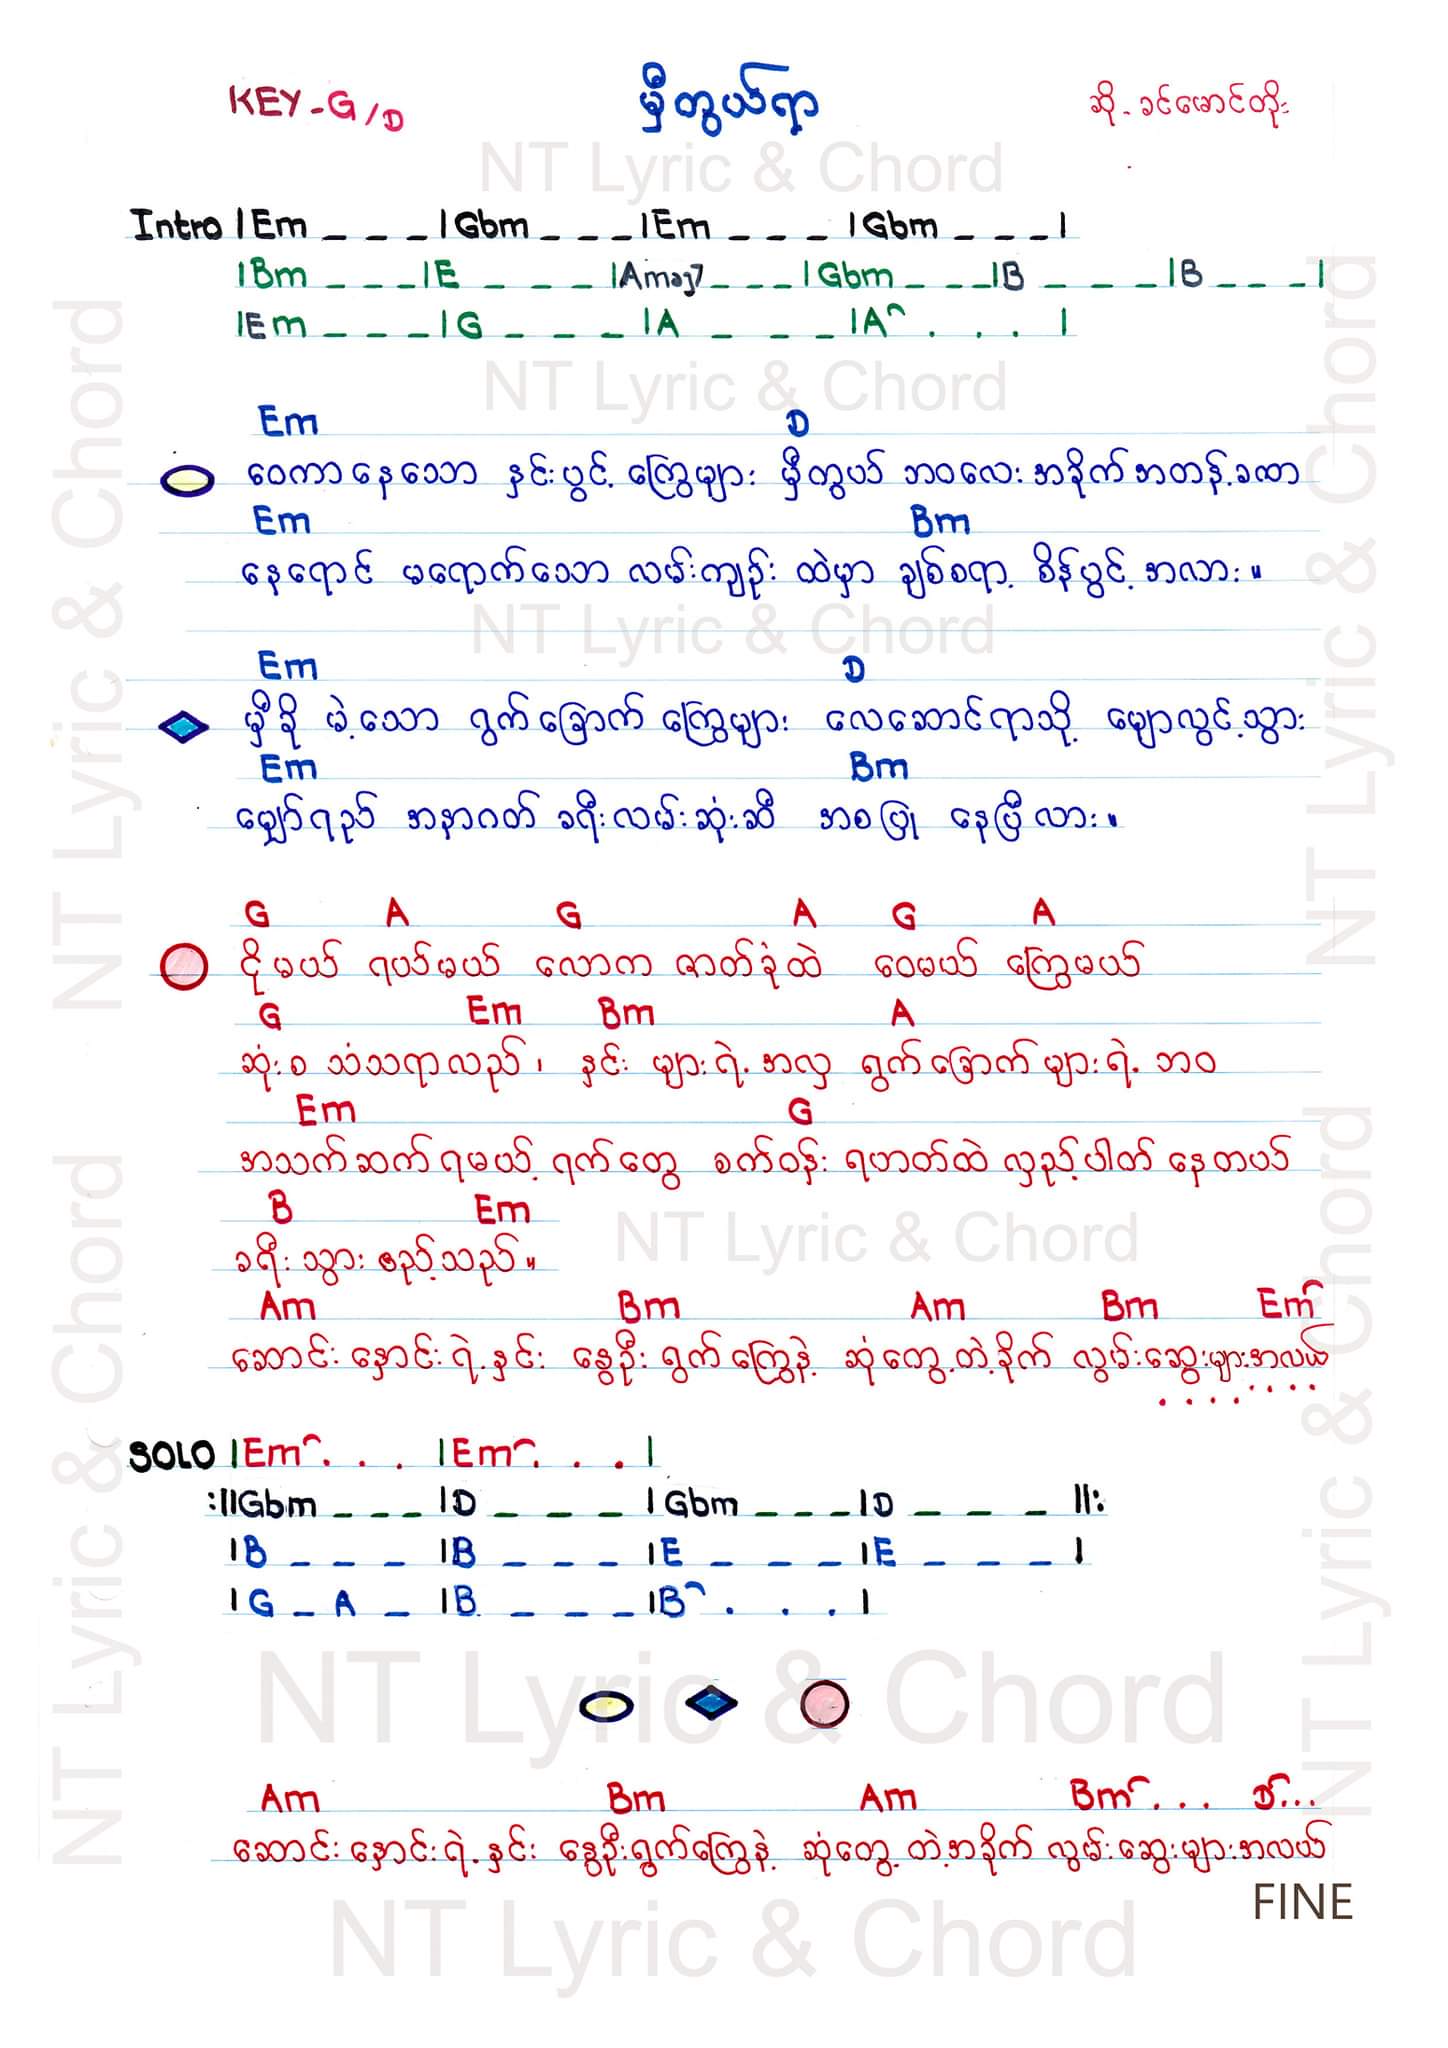 KEY - G/D
မှီတွယ်ရာ
ဆို - ခင်မောင်တိုး
NT Lyric & Chord
Intro |Em _ _ _|Gbm _ _ _|Em _ _ _ |Gbm _ _ _|
|Bm _ _ _|E _ _ _|Amaj7 _ _ _|Gbm _ _ _|B _ _ _|B _ _ _|
|Em _ _ _|G _ _ _|A _ _ _|A^ . . . |
NT Lyric & Chord
Em D
ဝေကာနေသော နှင်းပွင့် ကြွေများ မှီတွယ် ဘဝလေး အခိုက်အတန့်ခဏ
Em Bm
နေရောင် မရောက်သော လမ်းကျဉ်း ထဲမှာ ချစ်စရာ့ စိန်ပွင့် အလား။
NT Lyric & Chord
Em D
မှီခို မဲ့သော ရွက်ခြောက် ကြွေများ လေဆောင်ရာသို့ မျောလွင့်သွား
Em Bm
မျှော်ရည် အနာဂတ် ခရီးလမ်းဆုံးဆီ အစပြု နေပြီလား။
G A G A G A
ငိုမယ် ရယ်မယ် လောက ဇာတ်ခုံထဲ ဝေမယ် ကြွေမယ်
G Em Bm A
ဆုံးစ သံသရာလည်၊ နှင်း များရဲ့ အလှ ရွက်ခြောက်များရဲ့ ဘဝ
Em G
အသက်ဆက်ရမယ့် ရက်တွေ စက်ဝန်း ရဟတ်ထဲ လှည့်ပါတ်နေတယ်
B Em
ခရီးသွား ဧည့်သည်။
NT Lyric & Chord
Am Bm Am Bm Em^
ဆောင်းနှောင်းရဲ့နှင်း နွေဦးရွက်ကြွေနဲ့ ဆုံတွေ့တဲ့ခိုက် လွမ်းဆွေးများအလယ်
. . . . . . . .
SOLO |Em^ . . . |Em^ . . . |
:||Gbm _ _ _ |D _ _ _ | Gbm _ _ _|D _ _ _ ||:
|B _ _ _ |B _ _ _ |E _ _ _|E _ _ _ |
|G _ A _ |B _ _ _|B^ . . . |
NT Lyric & Chord
Am Bm Am Bm^ . . . D^ . . .
ဆောင်းနှောင်းရဲ့နှင်း နွေဦးရွက်ကြွေနဲ့ ဆုံတွေ့တဲ့အခိုက် လွမ်းဆွေးများအလယ်
FINE
NT Lyric & Chord
NT Lyric & Chord
NT Lyric & Chord
NT Lyric & Chord
NT Lyric & Chord